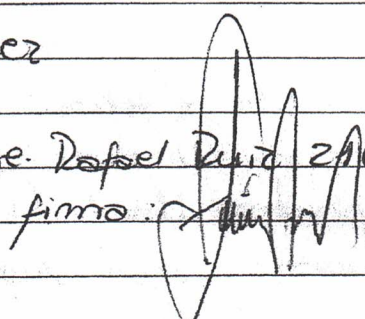 ez
e. Rafael Ruiz
firma: